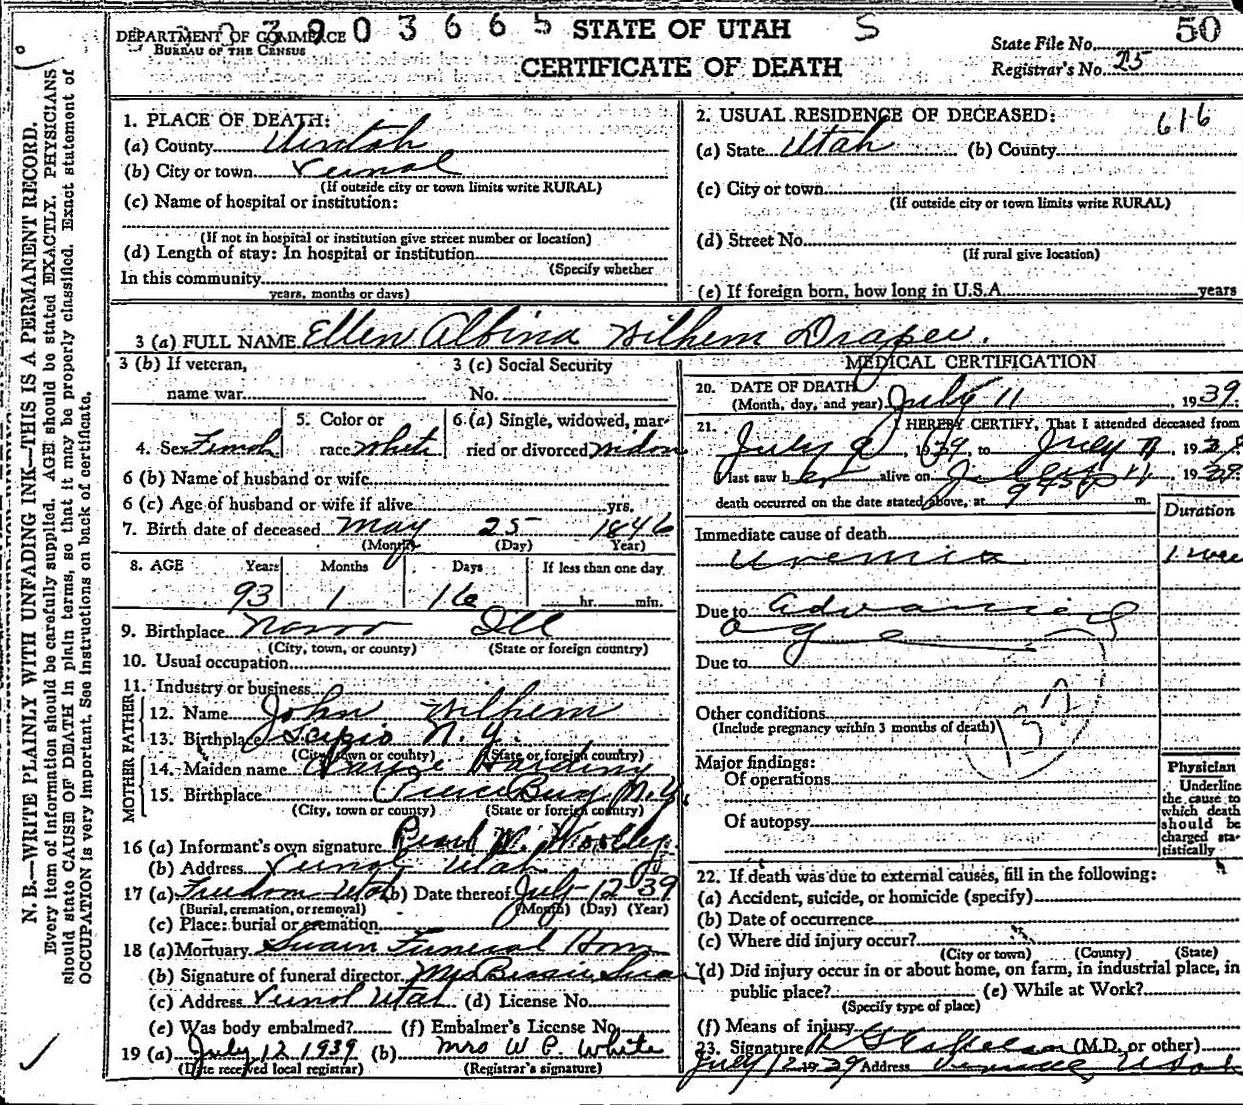 0390 3665 STATE OF UTAH S 50
DEPARTMENT OF COMMERCE
BUREAU OF THE CENSUS
CERTIFICATE OF DEATH
State File No.
Registrar's No. 25
N. B.—WRITE PLAINLY WITH UNFADING INK—THIS IS A PERMANENT RECORD.
Every item of information should be carefully supplied. AGE should be stated EXACTLY. PHYSICIANS
should state CAUSE OF DEATH in plain terms, so that it may be properly classified. Exact statement of
OCCUPATION is very important. See instructions on back of certificate.
1. PLACE OF DEATH:
(a) County Uintah
(b) City or town Vernal
(If outside city or town limits write RURAL)
(c) Name of hospital or institution:
(If not in hospital or institution give street number or location)
(d) Length of stay: In hospital or institution
(Specify whether
In this community
years, months or days)
2. USUAL RESIDENCE OF DECEASED:
616
(a) State Utah (b) County
(c) City or town
(If outside city or town limits write RURAL)
(d) Street No.
(If rural give location)
(e) If foreign born, how long in U.S.A. years
3 (a) FULL NAME Ellen Albina Wilhem Draper.
3 (b) If veteran,
name war
3 (c) Social Security
No.
4. Sex Femal
5. Color or
race White
6.(a) Single, widowed, mar-
ried or divorced Widow
6 (b) Name of husband or wife
6 (c) Age of husband or wife if alive yrs.
7. Birth date of deceased May 25 1846
(Month) (Day) Year)
8. AGE Years Months Days If less than one day
93 1 16 hr. min.
9. Birthplace Ill
(City, town, or county) (State or foreign country)
10. Usual occupation
11. Industry or business
FATHER
12. Name John Wilhem
13. Birthplace Scipio N. Y.
(City, town or county) (State or foreign country)
MOTHER
14. Maiden name Harding
15. Birthplace N. Y.
(City, town or county) (State or foreign country)
16 (a) Informant's own signature Pearl W.
(b) Address Vernal Utah
17 (a) Freedom Utah (b) Date thereof July 12 39
(Burial, cremation, or removal) (Month) (Day) (Year)
(c) Place: burial or cremation
18 (a) Mortuary Swain Funeral Hom
(b) Signature of funeral director Mrs Swain
(c) Address Vernal Utah (d) License No.
(e) Was body embalmed? (f) Embalmer's License No.
19 (a) July 12 1939 (b) Mrs W P. White
(Date received local registrar) (Registrar's signature)
MEDICAL CERTIFICATION
20. DATE OF DEATH
(Month, day, and year) July 11, 1939
21. I HEREBY CERTIFY, That I attended deceased from
July 9, 1939, to July 11 1939
I last saw her alive on July 11 1939
death occurred on the date stated above, at m.
Duration
Immediate cause of death
Uremia 1 wee
Due to advancing
age
Due to
Other conditions
(Include pregnancy within 3 months of death)
132
Major findings:
Of operations
Of autopsy
Physician
Underline
the cause to
which death
should be
charged sta-
tistically
22. If death was due to external causes, fill in the following:
(a) Accident, suicide, or homicide (specify)
(b) Date of occurrence
(c) Where did injury occur?
(City or town) (County) (State)
(d) Did injury occur in or about home, on farm, in industrial place, in
public place? (e) While at Work?
(Specify type of place)
(f) Means of injury
23. Signature (M.D. or other)
July 12 1939 Address Vernal, Utah